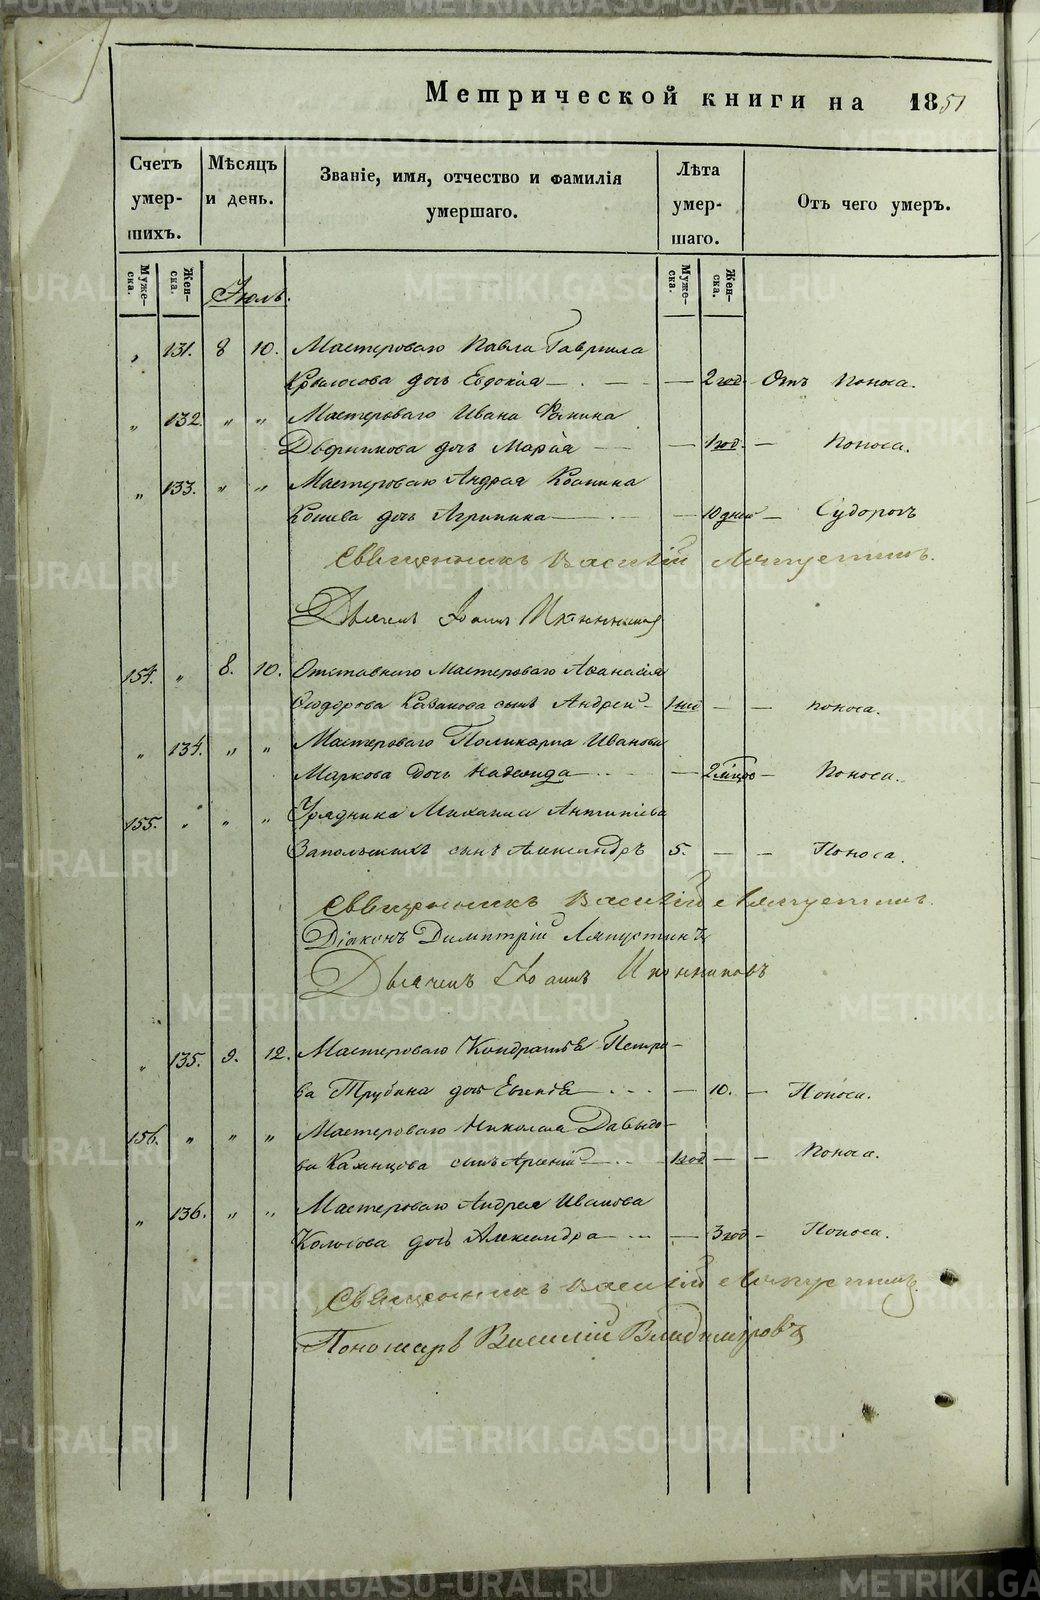 Метрической книги на 1851
Счетъ умер- шихъ.
Мѣсяцъ и день.
Званіе, имя, отчество и фамилія умершаго.
Лѣта умер- шаго.
Отъ чего умеръ.
Муже- ска.
Жен- ска.
Июль.
Муже- ска.
Жен- ска.
„ 131. 8 10. Мастероваго Павла Гаврила
дочь Евдокия — 2 год — Отъ поноса.
„ 132. „ „ Мастероваго Ивана
Дворникова дочь Марія — 1 год. — Поноса.
„ 133. „ „ Мастероваго Андрея
дочь Агрипина — 10 дней — Судорогъ
Священникъ Василій Ляпустинъ.
Дьячекъ Іоаннъ Иконниковъ
154. „ 8. 10. Отставнаго Мастероваго Афанасія
Ѳедорова Казакова сынъ Андрей — 1 год — — поноса.
„ 134. „ „ Мастероваго Поликарпа Иванова
Маркова дочь Надежда — 2 — Поноса.
155. „ „ „ Урядника Михаила Антипьева
Запольскихъ сынъ Александръ 5. — — Поноса.
Священникъ Василій Ляпустинъ.
Діаконъ Димитрій Ляпустинъ
Дьячекъ Іоаннъ Иконниковъ
„ 135. 9. 12. Мастероваго Кондратья Петро-
ва Трубина дочь Евгенія — 10. — Поноса.
156. „ „ „ Мастероваго Николая Давыдо-
ва Казанцова сынъ Арсеній — 1 год — — Поноса.
„ 136. „ „ Мастероваго Андрея Иванова
дочь Александра — 3 год — Поноса.
Священникъ Василій Ляпустинъ.
Пономарь Василій Владиміровъ
METRIKI.GASO-URAL.RU